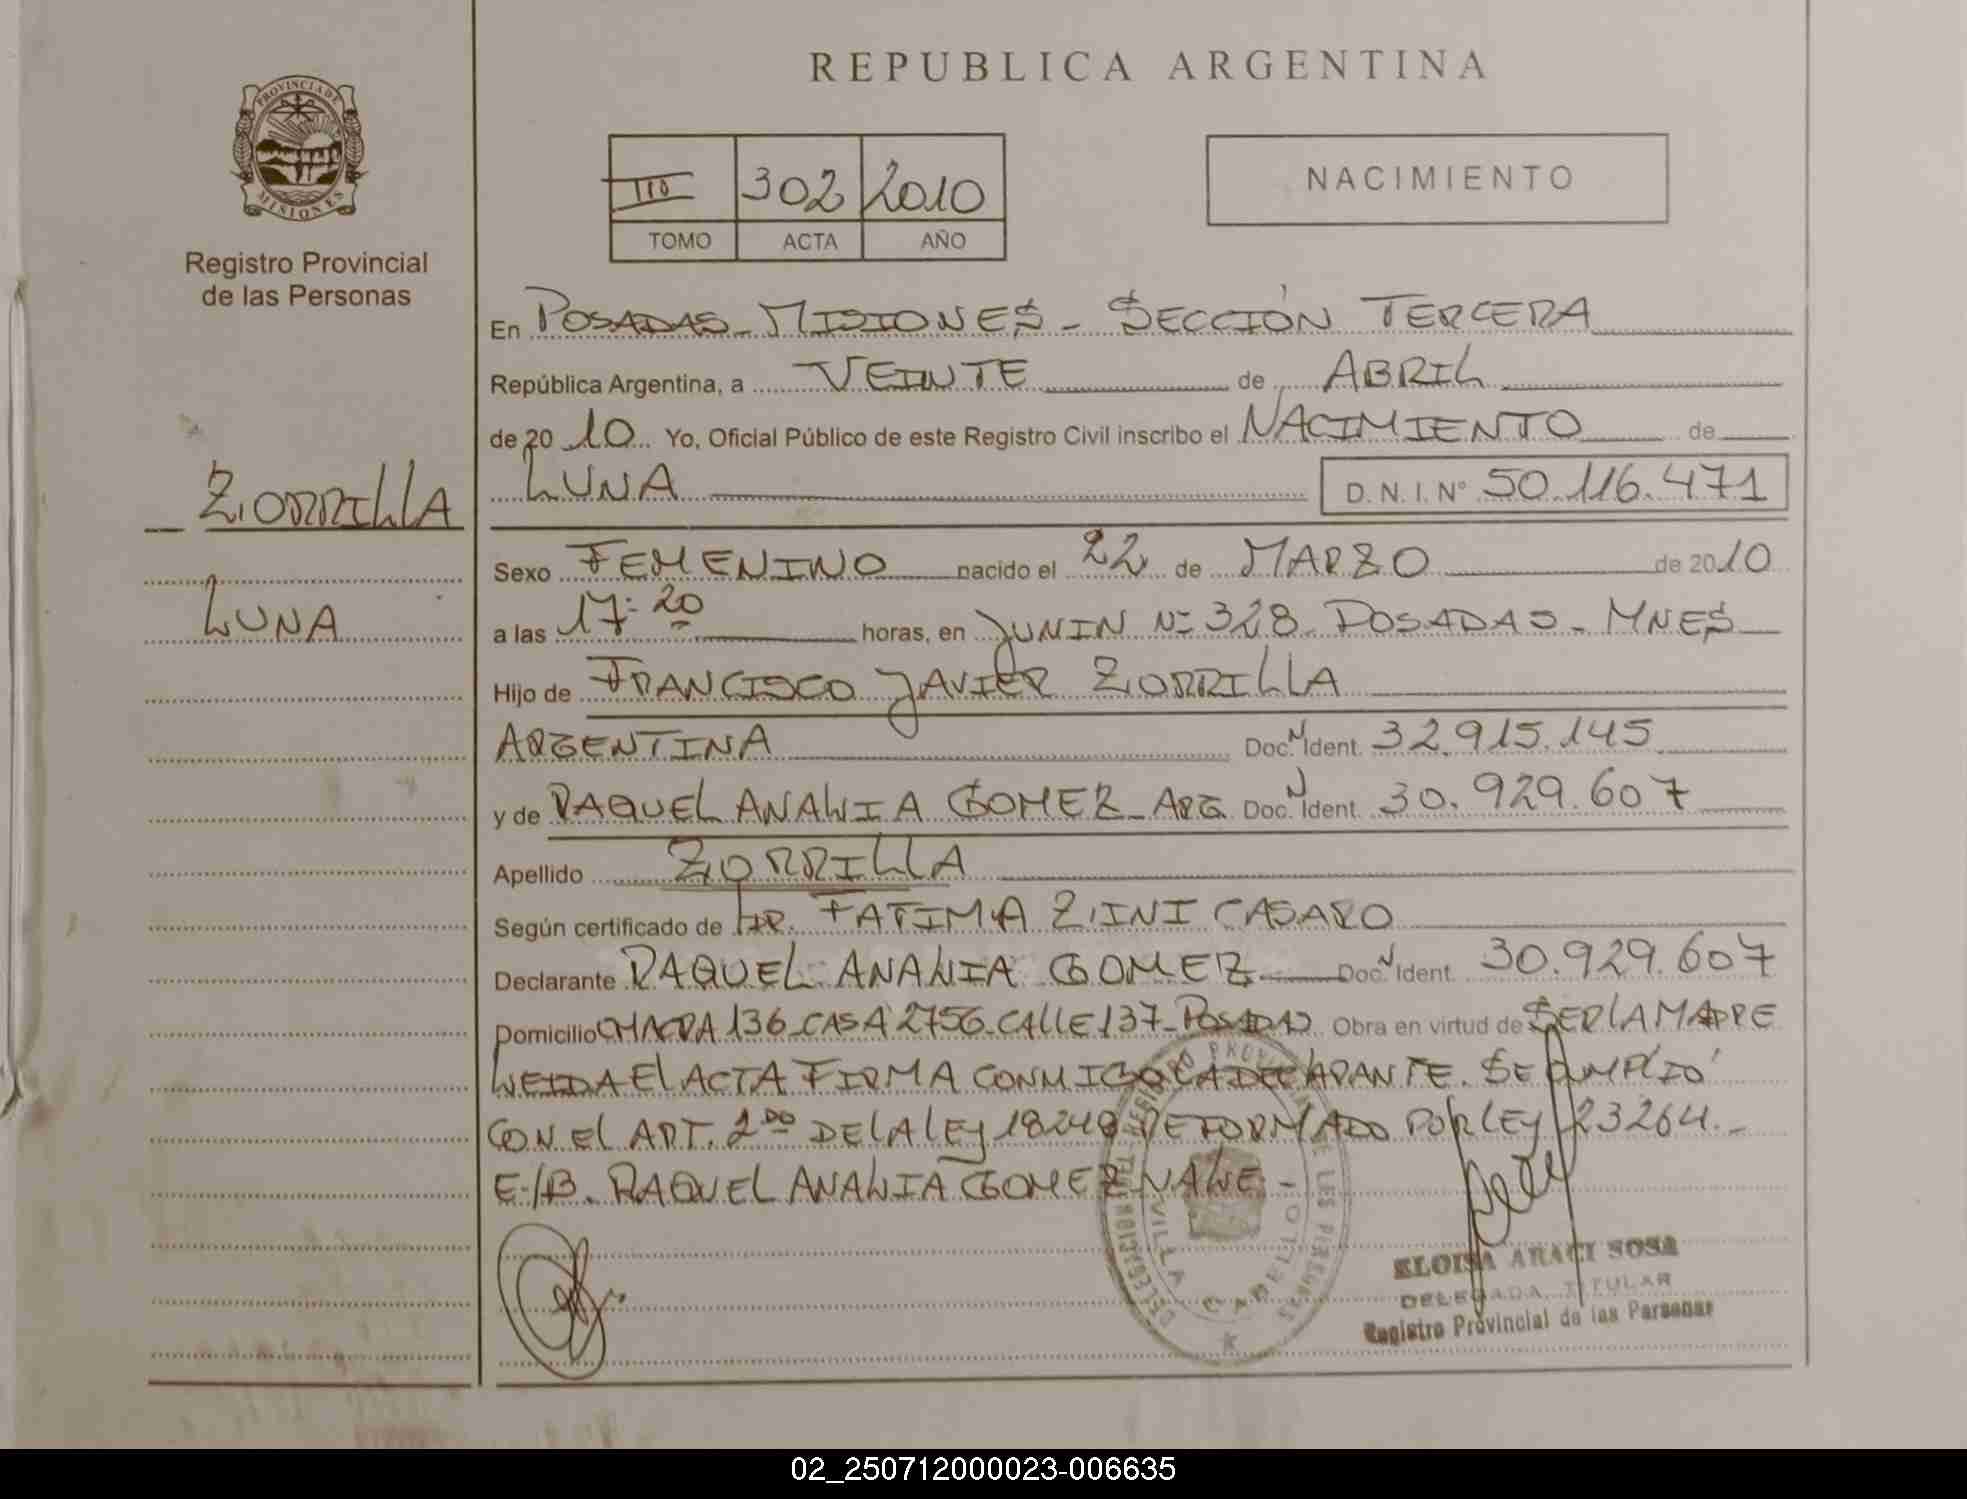 REPUBLICA ARGENTINA
PROVINCIA DE
MISIONES
Registro Provincial
de las Personas
III 302 2010
TOMO ACTA AÑO
NACIMIENTO
ZORRILLA
LUNA
En POSADAS - MISIONES - SECCIÓN TERCERA
República Argentina, a VEINTE de ABRIL
de 2010 Yo, Oficial Público de este Registro Civil inscribo el NACIMIENTO de
LUNA D.N.I. Nº 50.116.471
Sexo FEMENINO nacido el 22 de MARZO de 2010
a las 17:20 horas, en JUNIN Nº 328 POSADAS - MNES
Hijo de FRANCISCO JAVIER ZORRILLA
ARGENTINA Doc. N Ident. 32.915.145
y de RAQUEL ANALIA GOMEZ - ARG. Doc. N Ident. 30.929.607
Apellido ZORRILLA
Según certificado de DR. FATIMA ZINI CASARO
Declarante RAQUEL ANALIA GOMEZ Doc. N Ident. 30.929.607
Domicilio CHACRA 136 - CASA 2756 - CALLE 137 - POSADAS Obra en virtud de SER LA MADRE
LEIDA EL ACTA FIRMA CONMIGO LA DECLARANTE. SE CUMPLIÓ
CON EL ART. 2DO DE LA LEY 18248 REFORMADO POR LEY 23264.-
E/B. RAQUEL ANALIA GOMEZ VALE -
VILLA CABELLO
ELOISA ARACI SOSA
DELEGADA TITULAR
Registro Provincial de las Personas
02_250712000023-006635